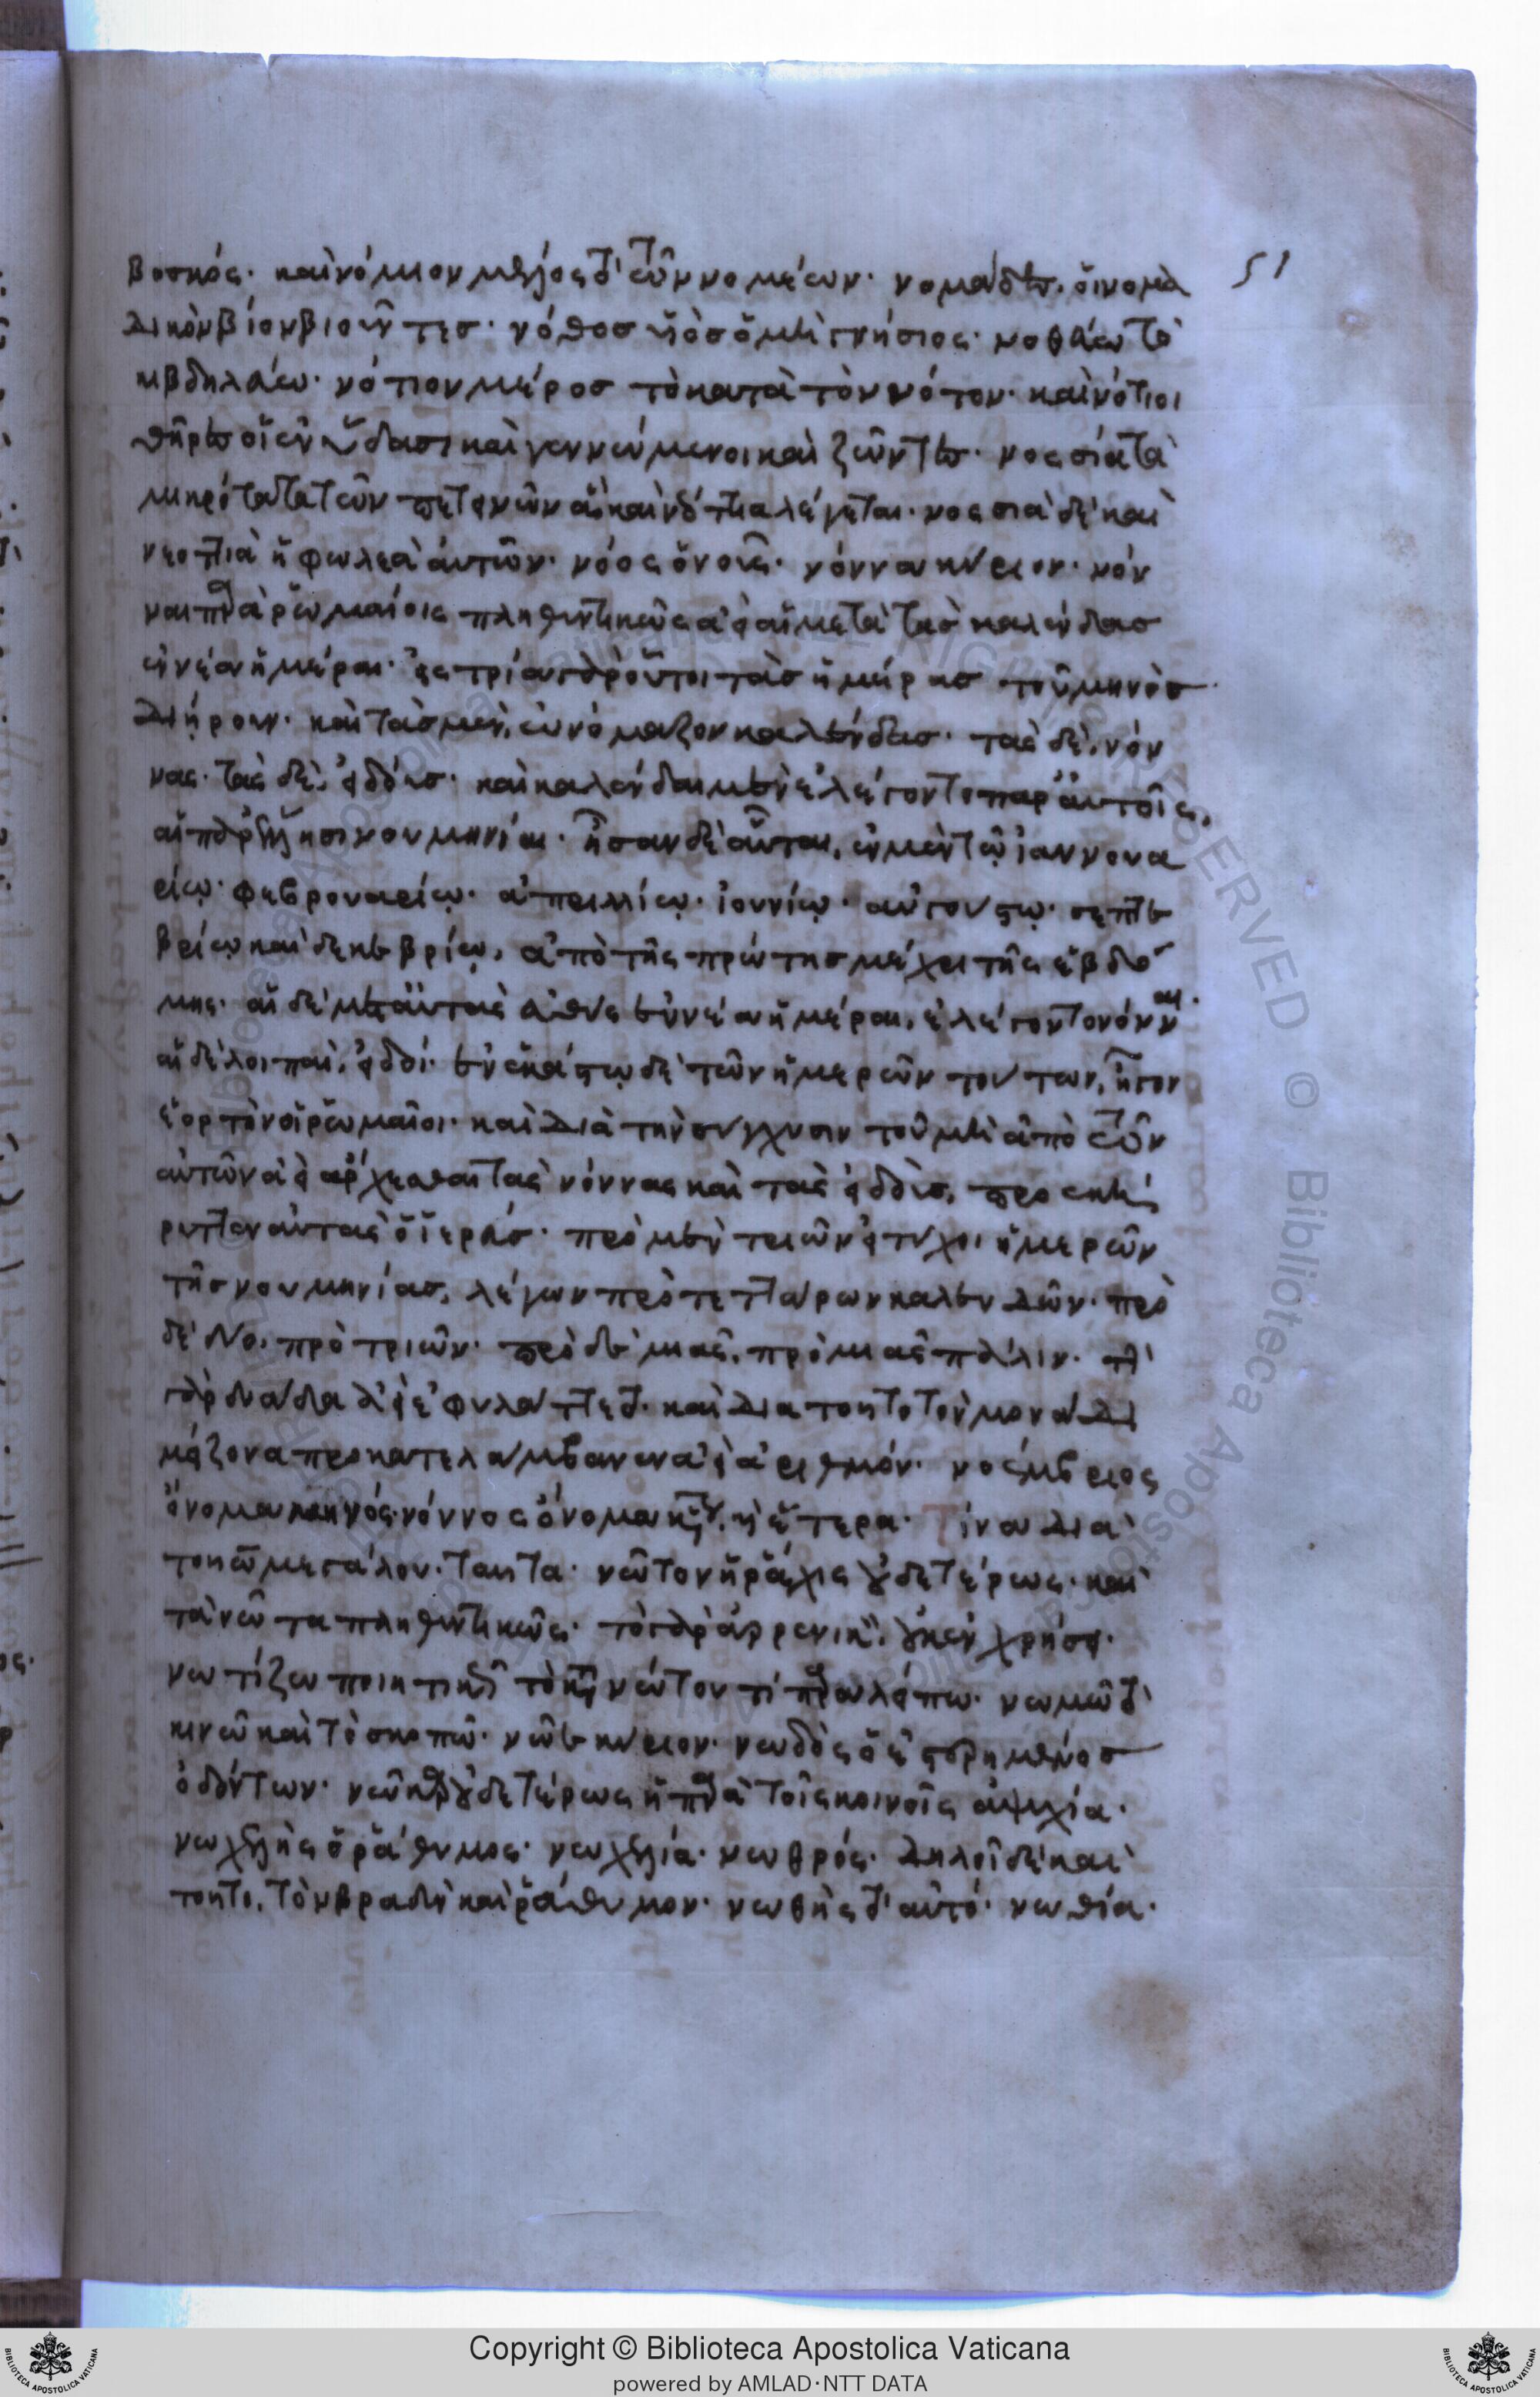 51
βοσκός· καὶ νόμιον μέλος τὸ τῶν νομέων· νομάδες, οἱ νομα
δικὸν βίον βιοῦντες· νόθος υἱὸς ὁ μὴ γνήσιος· νοθεύω τὸ
κιβδηλεύω· νότιον μέρος τὸ κατὰ τὸν νότον· καὶ νότιοι
θῆρες οἱ ἐν ὕδασι καὶ γεννώμενοι καὶ ζῶντες· νοσσία τὰ
μικρότατα τῶν πετεινῶν ἃ καὶ νεόττια λέγεται· νοσσιὰ δὲ καὶ
νεοττιὰ ἡ φωλεὰ αὐτῶν· νόος ὁ νοῦς· νόννα κύριον· νόν
ναι παρὰ ῥωμαίοις πληθυντικῶς αἱ μετὰ τὰς καλένδας
ἐννέα ἡμέραι· εἰς τρία γὰρ οὗτοι τὰς ἡμέρας τοῦ μηνὸς
διῄρουν· καὶ τὰς μὲν, ὠνόμαζον καλένδας· τὰς δὲ, νόν
νας· τὰς δὲ, εἰδούς· καὶ καλένδαι μὲν ἐλέγοντο παρ' αὐτοῖς,
αἱ παρ' ἕλλησι νουμηνίαι· ἦσαν δὲ αὗται, ἐν μὲν τῷ ἰαννουα
ρίῳ· φεβρουαρίῳ· ἀπριλλίῳ· ἰουνίῳ· αὐγούστῳ· σεπτεμ
βρίῳ καὶ δεκεμβρίῳ, ἀπὸ τῆς πρώτης μέχρι τῆς ἑβδό
μης· αἱ δὲ μετ' αὐτὰς εὐθὺς ἐννέα ἡμέραι, ἐλέγοντο νόνναι·
αἱ δὲ λοιπαὶ, εἰδοί· ἐν ἑκάστῳ δὲ τῶν ἡμερῶν τούτων, ἦγον
ἑορτὴν οἱ ῥωμαῖοι· καὶ διὰ τὴν σύγχυσιν τοῦ μὴ ἀπὸ τῶν
αὐτῶν ἀεὶ ἄρχεσθαι τὰς νόννας καὶ τὰς εἰδούς, προεκή
ρυττεν αὐτὰς ὁ ἱερεύς· πρὸ μὲν τριῶν εἰ τύχοι ἡμερῶν
τῆς νουμηνίας, λέγων πρὸ τεττάρων καλενδῶν· πρὸ
δὲ δύο, πρὸ τριῶν· πρὸ δὲ μιᾶς, πρὸ μιᾶς πάλιν·
γὰρ δυάδα ἀεὶ ἐφυλάττετο· καὶ διὰ τοῦτο τὸν μονάδι
μείζονα προκατελάμβανεν ἀεὶ ἀριθμόν· νοέμβριος
ὄνομα μηνός· νόννος ὄνομα κύριον, ἢ ἕτερα· Τὶνα διὰ
τοῦ ω μεγάλου· ταῦτα· νῶτον ἡ ῥάχις οὐδετέρως· καὶ
τὰ νῶτα πληθυντικῶς· τὸ γὰρ ἀρρενικὸν, οὐκ ἐν χρήσει·
νωτίζω ποιητικὸν τὸ κατὰ νώτου τι παραλείπω· νωμῶ τὸ
κινῶ καὶ τὸ σκοπῶ· νῶε κύριον· νωδὸς ὁ ἐστερημένος
ὀδόντων· νῶκαρ οὐδετέρως ἡ παρὰ τοῖς κοινοῖς ἀψυχία·
νωχελὴς ὁ ῥάθυμος· νωχελία· νωθρός· δηλοῖ δὲ καὶ
τοῦτο, τὸν βραδὺν καὶ ῥάθυμον· νωθὴς τ' αὐτό· νωθία·
Copyright © Biblioteca Apostolica Vaticana
powered by AMLAD·NTT DATA